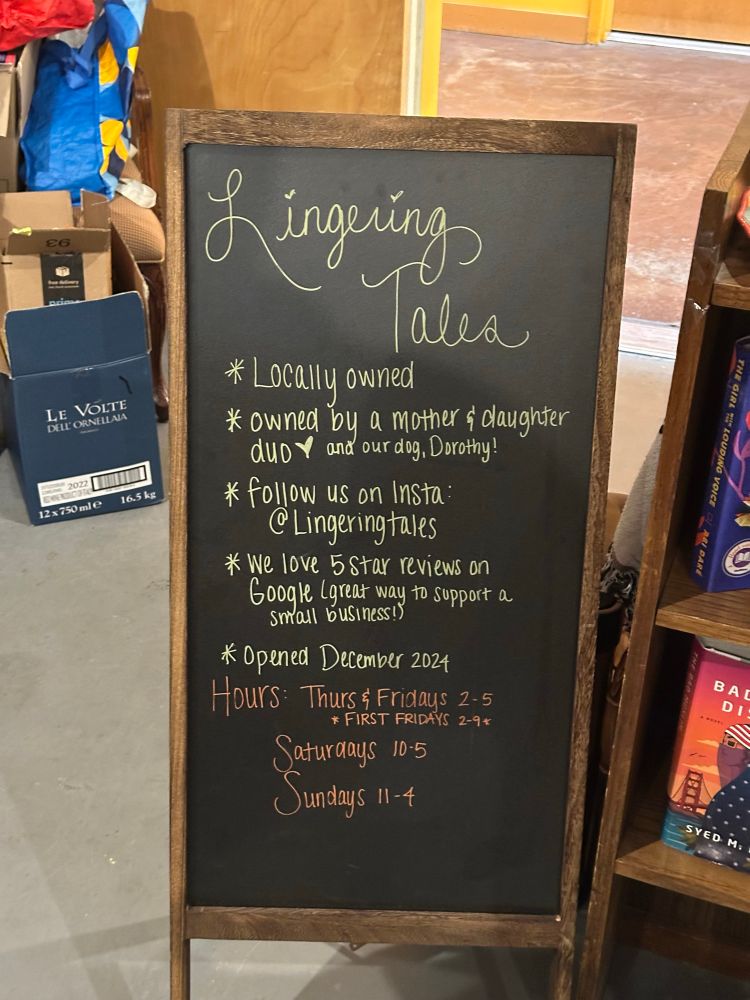 Lingering
Tales
* Locally owned
* owned by a mother & daughter
duo ♥ and our dog, Dorothy!
* Follow us on Insta:
@Lingeringtales
* We love 5 star reviews on
Google (great way to support a
small business!)
* Opened December 2024
Hours: Thurs & Fridays 2-5
* FIRST FRIDAYS 2-9 *
Saturdays 10-5
Sundays 11-4
free delivery
prime
LE VOLTE
DELL'ORNELLAIA
2022
12 x 750 ml e 16.5 kg
THE GIRL WITH THE LOUDING VOICE
ABI DARÉ
BAD
DIS
A NOVEL
SYED M.